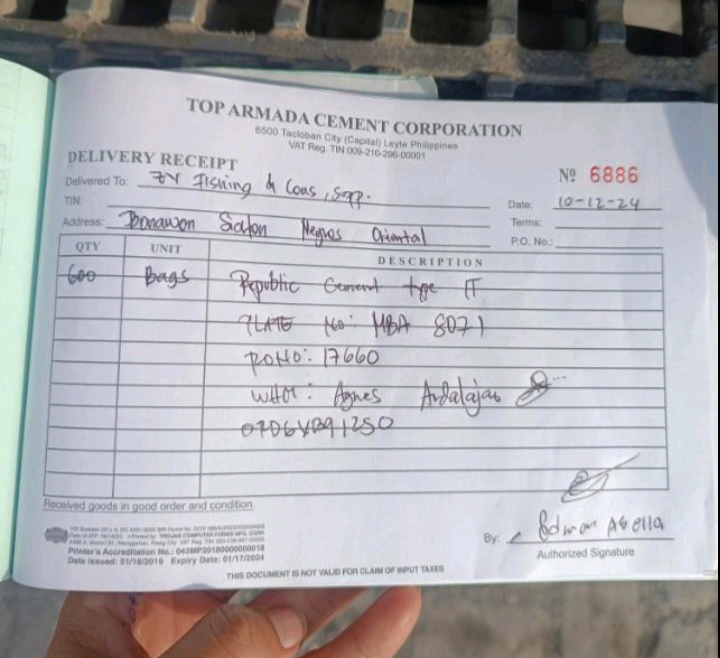 TOP ARMADA CEMENT CORPORATION
6500 Tacloban City (Capital) Leyte Philippines
VAT Reg. TIN 009-210-296-00001
DELIVERY RECEIPT
Nº 6886
Delivered To: ZY Fishing & Cons, Supp.
Date: 10-12-24
TIN:
Terms:
Address: Bonawon Siaton Negros Oriental
P.O. No.:
QTY UNIT DESCRIPTION
600 Bags Republic Cement type IT
PLATE No: MBA 8071
17660
Agnes
Received goods in good order and condition.
Printer's Accreditation No.: 043MP20180000000018
Date issued: 01/18/2019 Expiry Date: 01/17/2024
By: Abella
Authorized Signature
THIS DOCUMENT IS NOT VALID FOR CLAIM OF INPUT TAXES